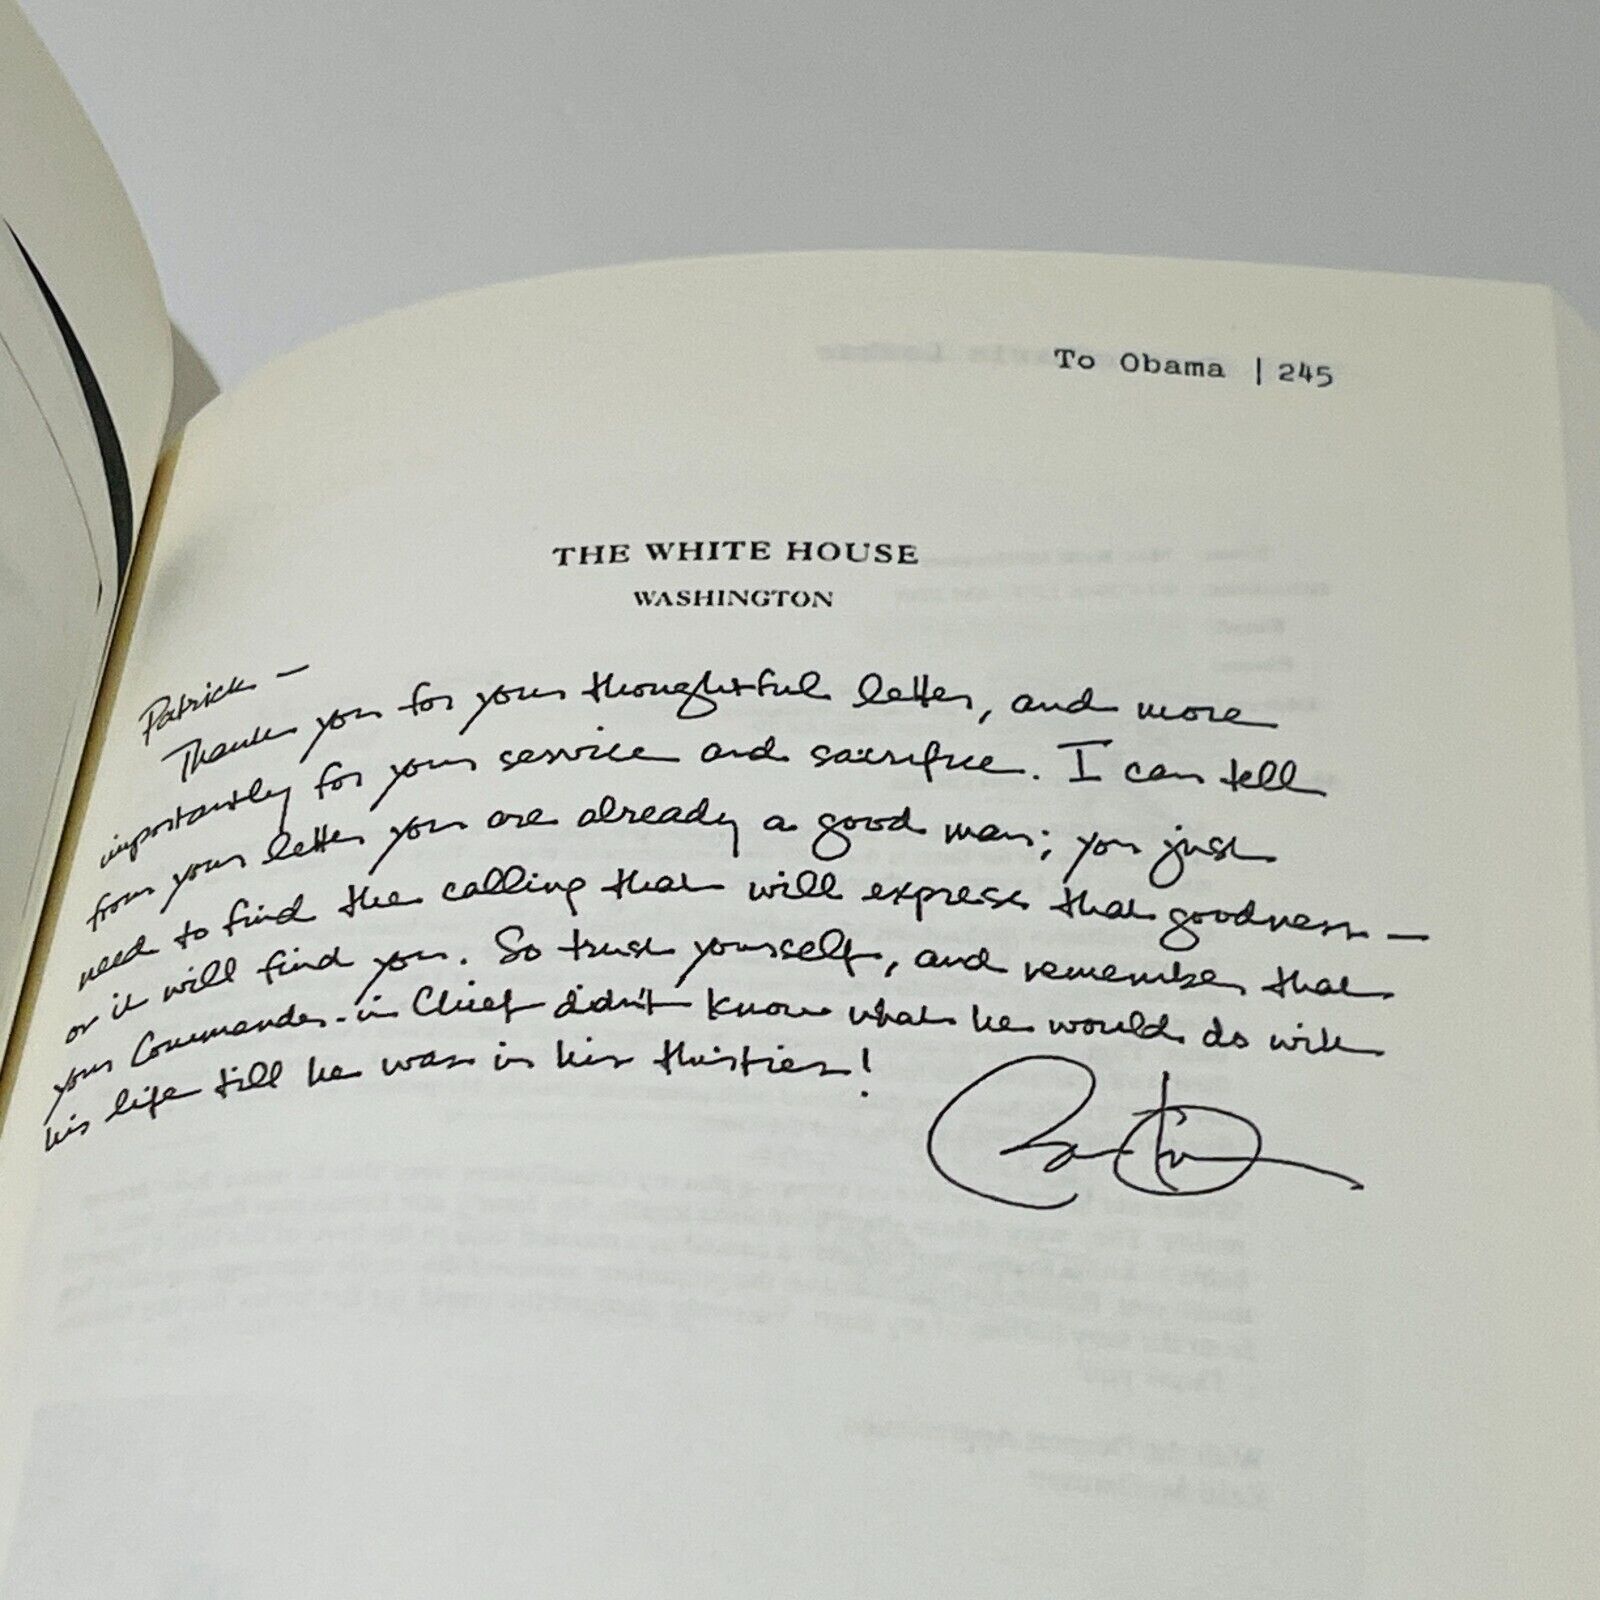 To Obama | 245
THE WHITE HOUSE
WASHINGTON
Patrick —
Thank you for your thoughtful letter, and more
importantly for your service and sacrifice. I can tell
from your letter you are already a good man; you just
need to find the calling that will express that goodness —
or it will find you. So trust yourself, and remember that
your Commander-in Chief didn't know what he would do with
his life till he was in his thirties!